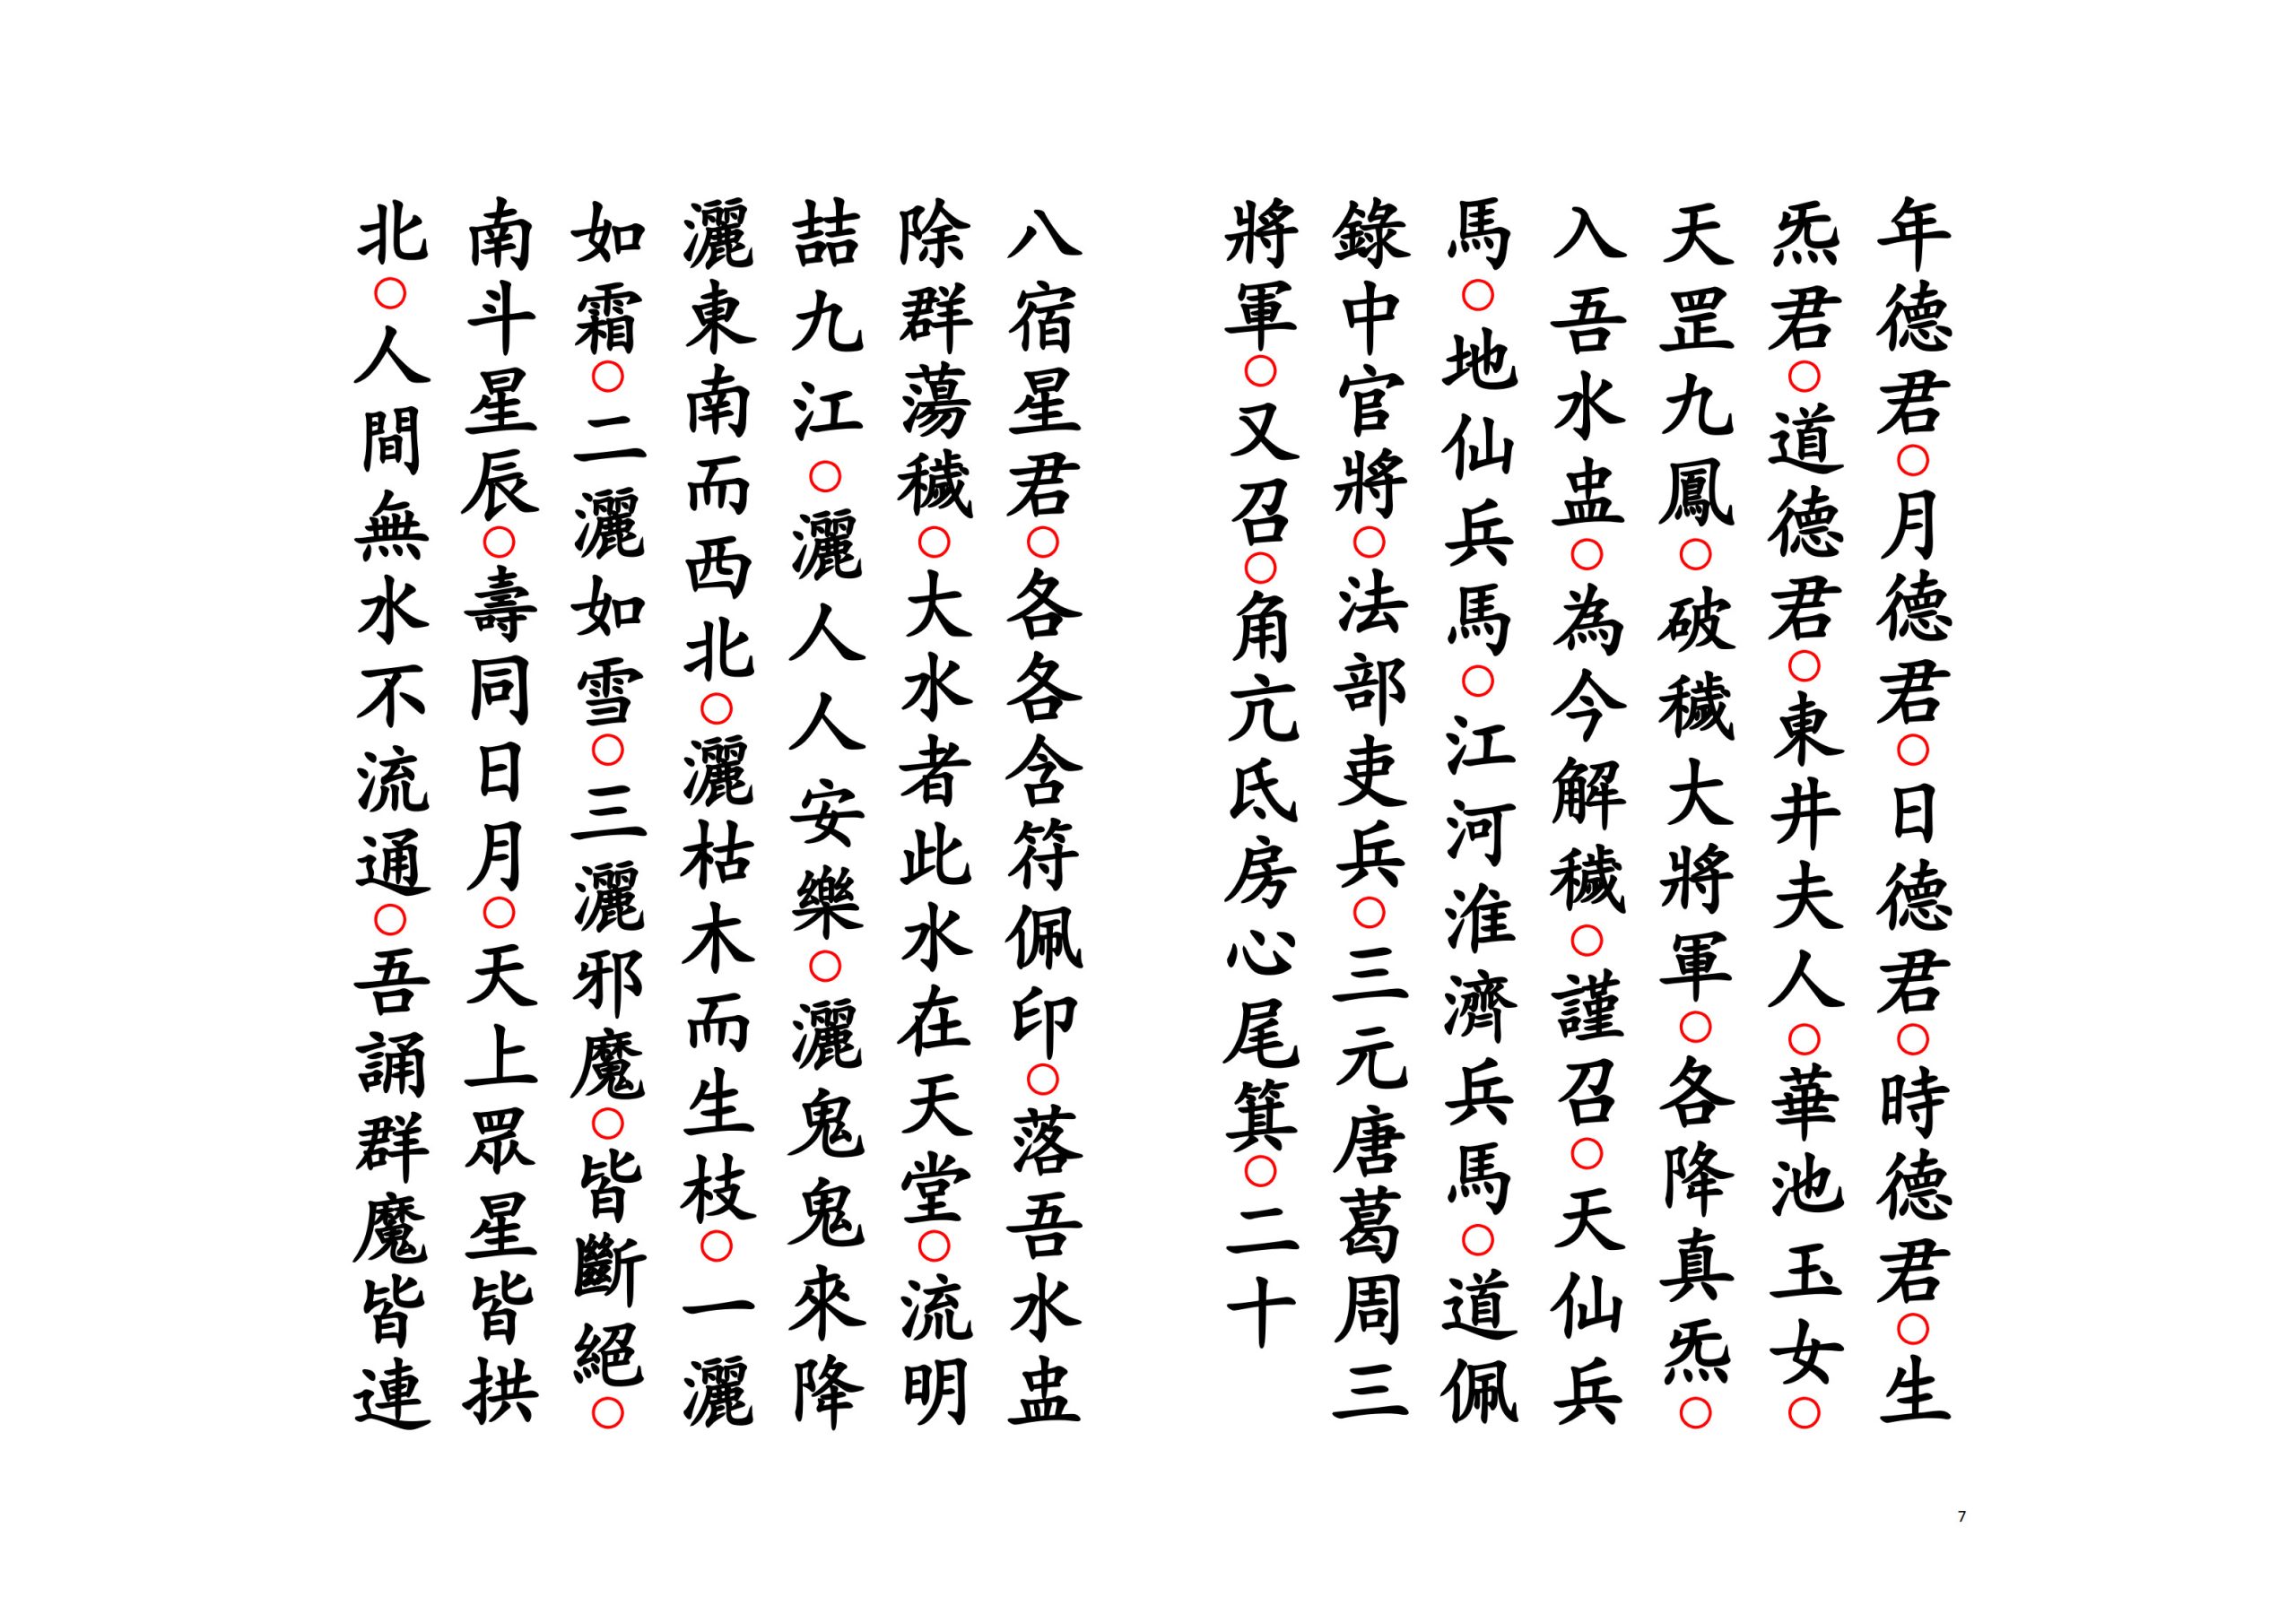 年德君○月德君○日德君○時德君○生
炁君○道德君○東井夫人○華池玉女○
天罡九鳳○破穢大將軍○各降真炁○
入吾水盅○為今解穢○謹召○天仙兵
馬○地仙兵馬○江河淮濟兵馬○道佩
錄中官將○法部吏兵○三元唐葛周三
將軍○又召○角亢氐房心尾箕○二十
八宿星君○各各含符佩印○落吾水盅
除群蕩穢○大水者此水在天堂○流明
喆九江○灑人人安樂○灑鬼鬼來降
灑東南而西北○灑枯木而生枝○一灑
如霜○二灑如雪○三灑邪魔○皆斷絕○
南斗星辰○壽同日月○天上眾星皆拱
北○人間無水不流通○吾誦群魔皆連
7